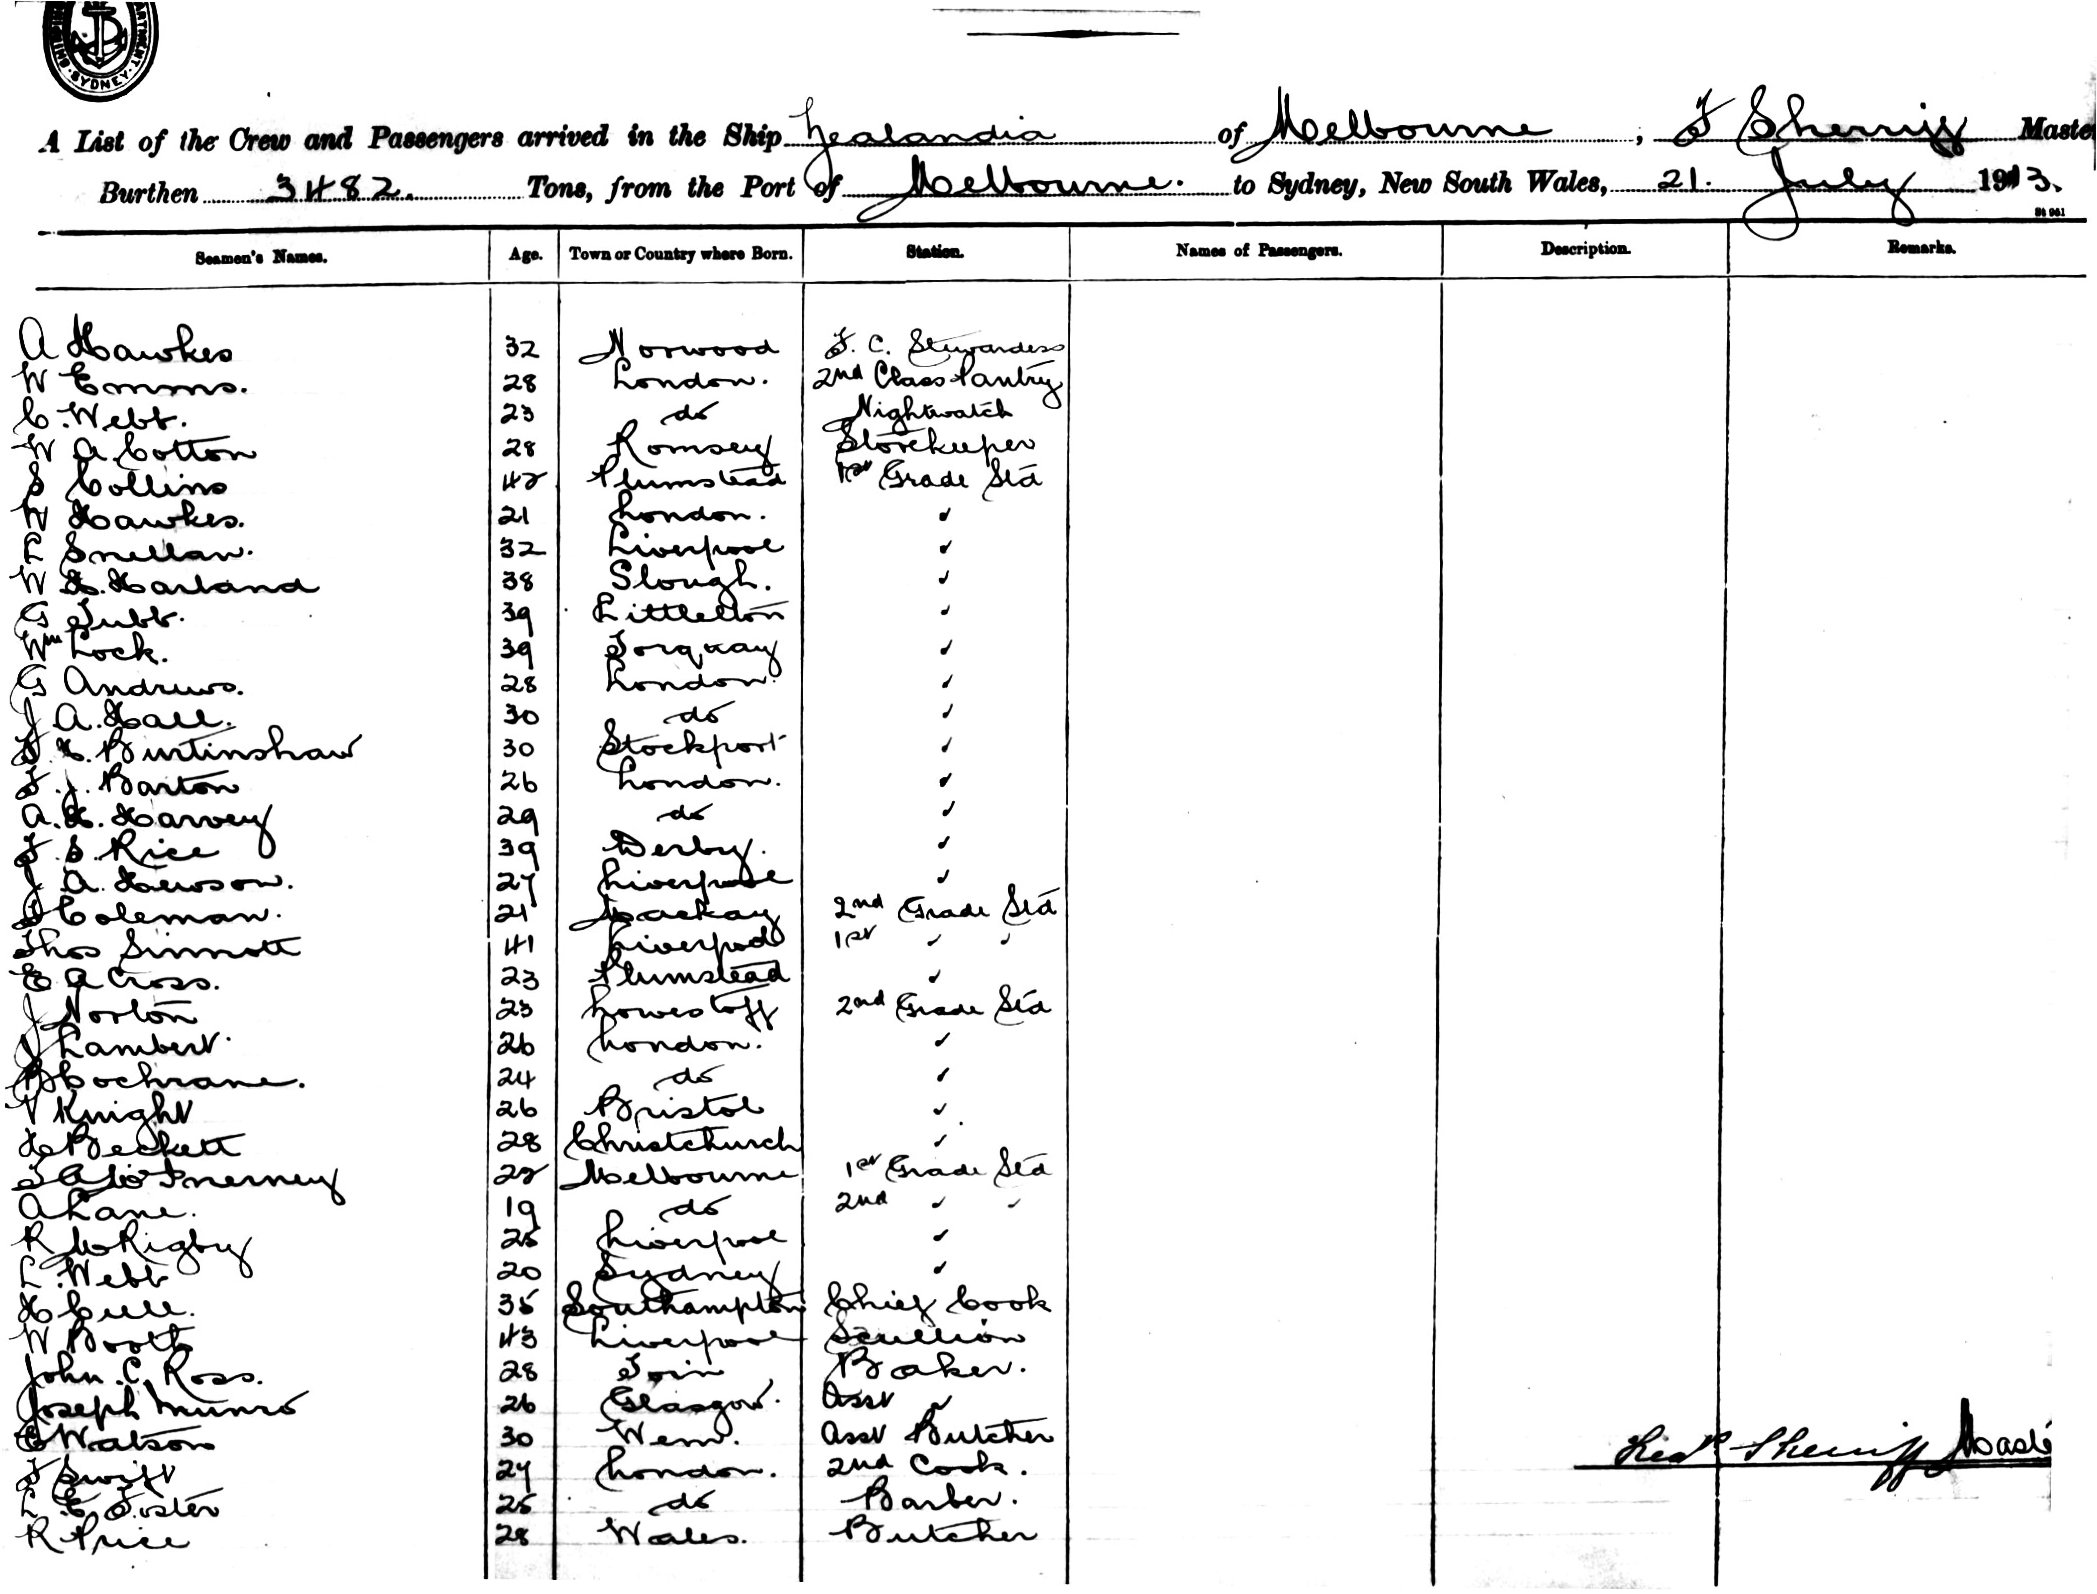 SHIPPING DEPARTMENT SYDNEY
A List of the Crew and Passengers arrived in the Ship Zealandia of Melbourne, F Sherriff Maste
Burthen 3482. Tons, from the Port of Melbourne. to Sydney, New South Wales, 21. July 1913.
St 961
Seamen's Names. Age. Town or Country where Born. Station. Names of Passengers. Description. Remarks.
A Hawkes 32 Norwood F. C. Stewardess
W Emms. 28 London. 2nd Class Pantry
C. Webb. 23 do Nightwatch
W A Cotton 28 Romsey Storekeeper
S Collins 42 Plumstead 1st Grade Std
W Hawkes. 21 London. "
L Snellan. 32 Liverpool "
W H. Harland 38 Slough. "
G Tubb. 39 Littleton "
Wm Lock. 39 Torquay "
G Andrews. 28 London. "
J A. Hall. 30 do "
Burtinshaw 30 Stockport "
F. J. Barton 26 London. "
A. H. Harvey 29 do "
F. S. Rice 39 Derby. "
J A. Hewson. 27 Liverpool "
Coleman. 21 Mackay 2nd Grade Std
Thos Sinnott 41 Liverpool 1st " "
E A Cross. 23 Plumstead "
J Norton 23 Lowestoff 2nd Grade Std
J Lambert. 26 London. "
Cochrane. 24 do "
V Knight 26 Bristol "
H Beckett 28 Christchurch "
Inerney 22 Melbourne 1st Grade Std
A Lane. 19 do 2nd " "
R Mc Rigby 25 Liverpool "
L. Webb 20 Sydney "
H Cull. 35 Southampton Chief Cook
W Booth 43 Liverpool Scullion
John. C. Ross. 28 Toin Baker.
Joseph Munro 26 Glasgow. Asst "
E Watson 30 Wem. Asst Butcher
F Swift 27 London. 2nd Cook.
L. E Foster 25 do Barber.
R Price 28 Wales. Butcher
Fredk Sherriff Maste